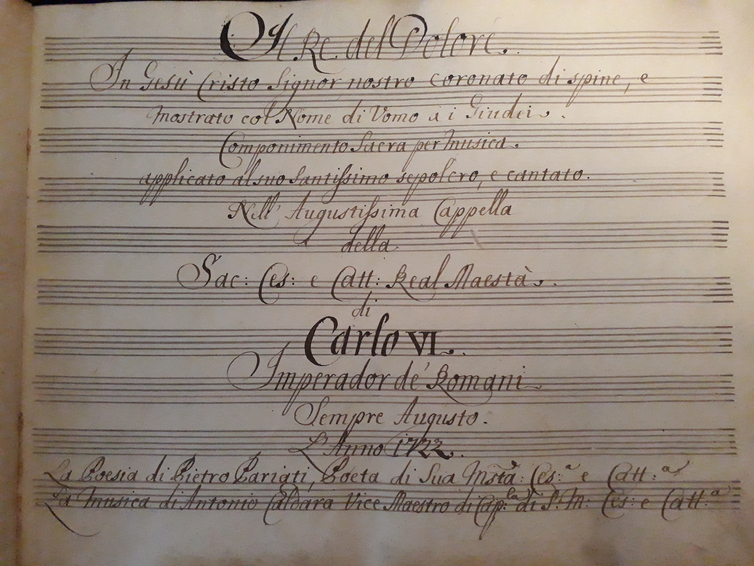 Il Re del Dolore.
In Gesù Cristo Signor nostro coronato di spine, e
mostrato col Nome di Vomo a i Giudei.
Componimento Sacra per Musica.
applicato al suo Santissimo sepolcro, e cantato.
Nell' Augustissima Cappella
della
Sac: Ces: e Catt: Real Maestà.
di
Carlo VI.
Imperador de' Romani
Sempre Augusto.
L'Anno 1722.
La Poesia di Pietro Pariati, Poeta di Sua Mstà: Ces:ª e Catt:ª
La Musica di Antonio Caldara Vice Maestro di Cap:la di S: M: Ces: e Catt:ª